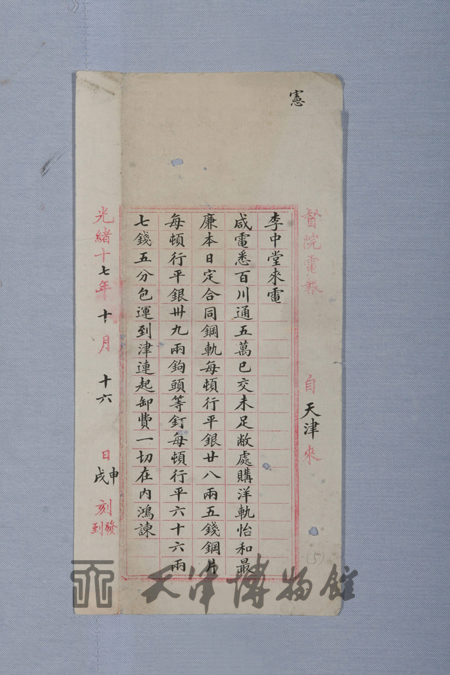 憲
督院電報 自天津來
李中堂來電
咸電悉百川通五萬已交未足敝處購洋軌怡和最
廉本日定合同鋼軌每頓行平銀廿八兩五錢鋼片
每頓行平銀卅九兩鉤頭等釘每頓行平六十六兩
七錢五分包運到津連起卸費一切在內鴻諫
光緒十七年十月十六日申刻發戌刻到
(5)
天津博物館